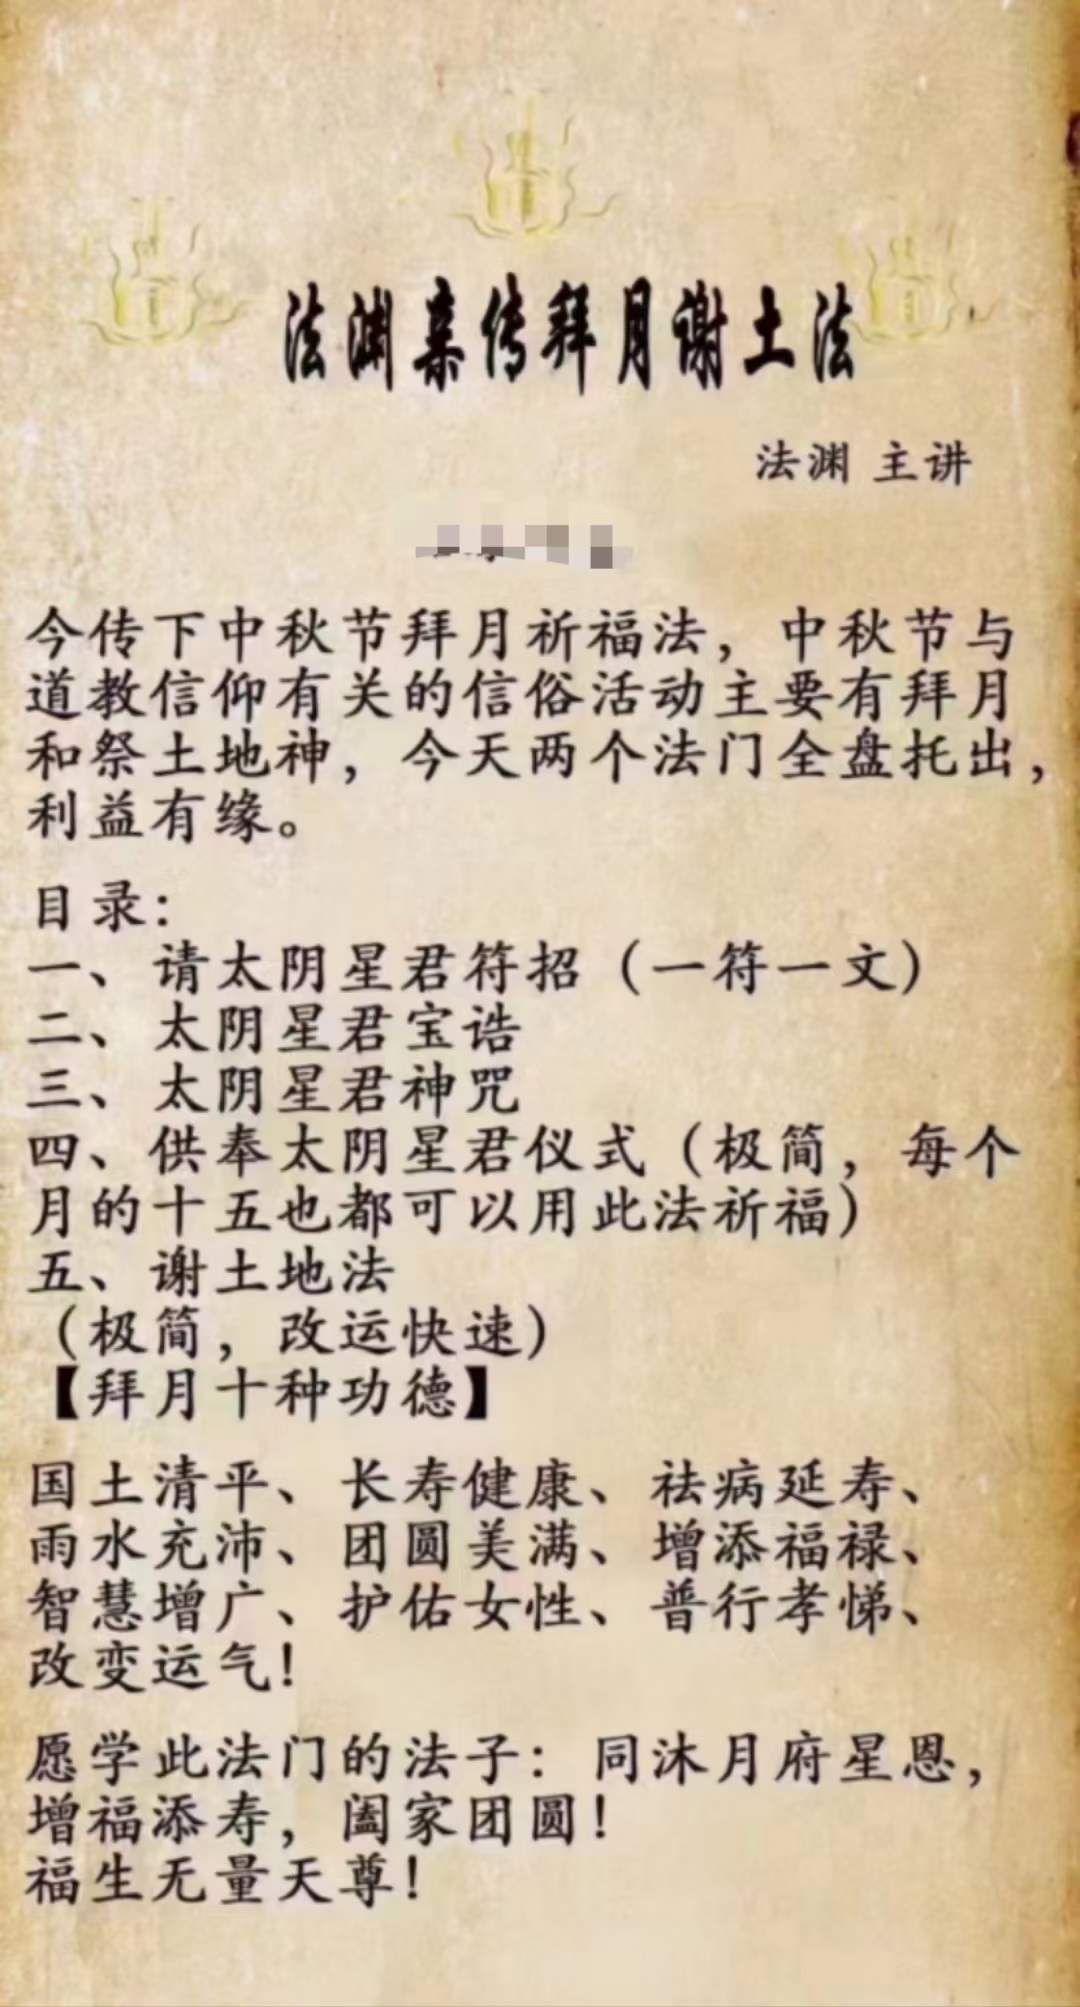 法渊亲传拜月谢土法
法渊 主讲
今传下中秋节拜月祈福法，中秋节与
道教信仰有关的信俗活动主要有拜月
和祭土地神，今天两个法门全盘托出，
利益有缘。
目录：
一、请太阴星君符招（一符一文）
二、太阴星君宝诰
三、太阴星君神咒
四、供奉太阴星君仪式（极简，每个
月的十五也都可以用此法祈福）
五、谢土地法
（极简，改运快速）
【拜月十种功德】
国土清平、长寿健康、祛病延寿、
雨水充沛、团圆美满、增添福禄、
智慧增广、护佑女性、普行孝悌、
改变运气！
愿学此法门的法子：同沐月府星恩，
增福添寿，阖家团圆！
福生无量天尊！